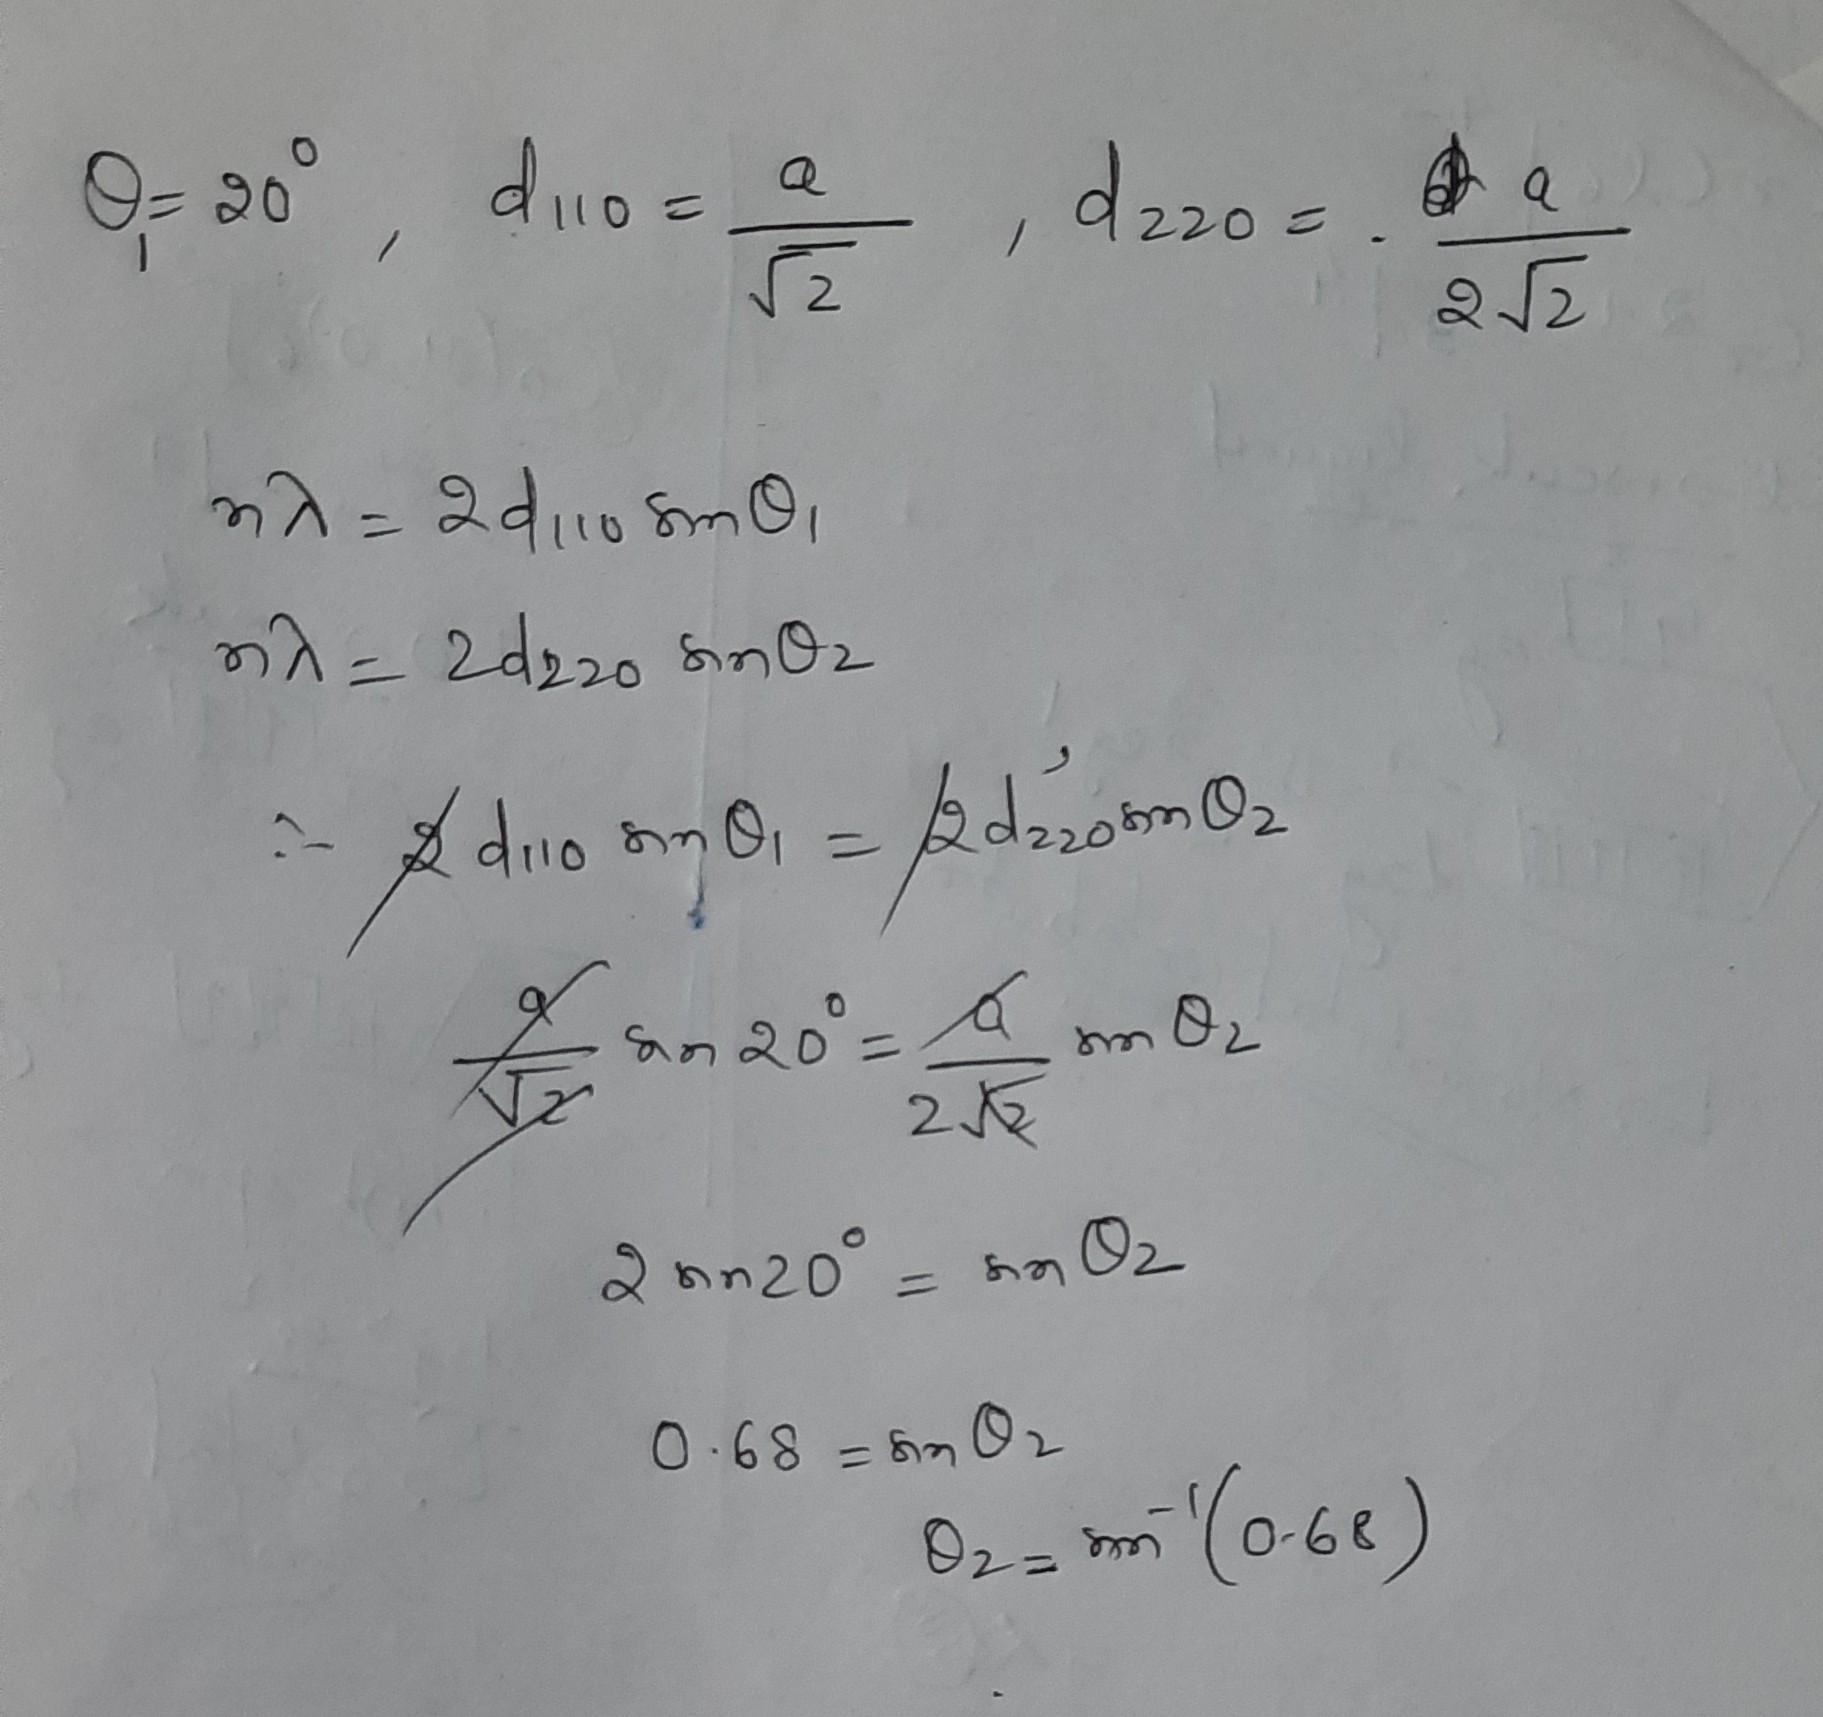 θ₁ = 20°, d₁₁₀ = a/√2, d₂₂₀ = a/2√2
nλ = 2d₁₁₀ sin θ₁
nλ = 2d₂₂₀ sin θ₂
∴ 2d₁₁₀ sin θ₁ = 2d₂₂₀ sin θ₂
a/√2 sin 20° = a/2√2 sin θ₂
2 sin 20° = sin θ₂
0.68 = sin θ₂
θ₂ = sin⁻¹(0.68)